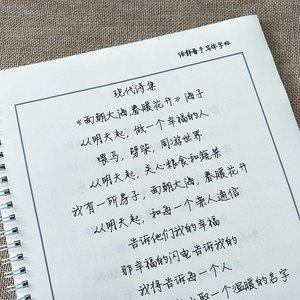 徐静蕾手写体字帖
现代诗集
《面朝大海，春暖花开》海子
从明天起，做一个幸福的人
喂马，劈柴，周游世界
从明天起，关心粮食和蔬菜
我有一所房子，面朝大海，春暖花开
从明天起，和每一个亲人通信
告诉他们我的幸福
那幸福的闪电告诉我的
我将告诉每一个人
取一个温暖的名字